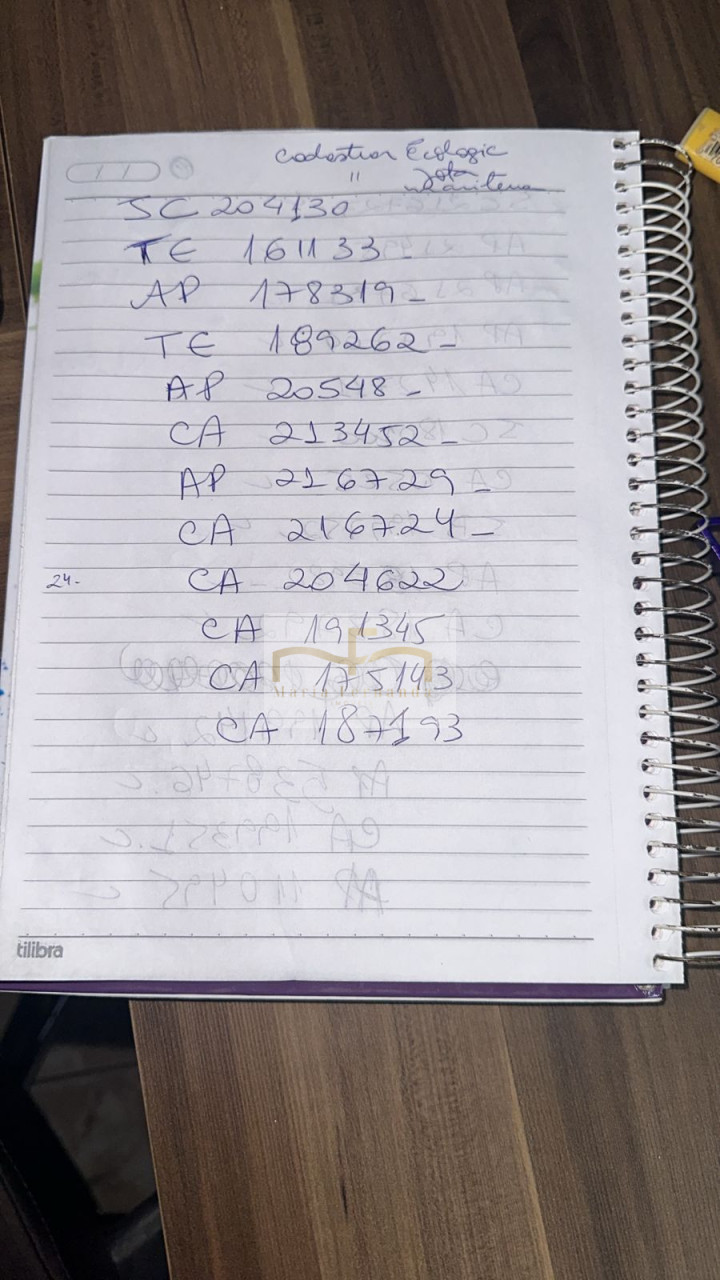 Cadastrar Ecologic
"
SC 204130
TE 161133 -
AP 178319 -
TE 189262 -
AP 20548 -
CA 213452 -
AP 216729 -
CA 216724 -
24- CA 204622
CA 191345
CA 175143
CA 187193
tilibra